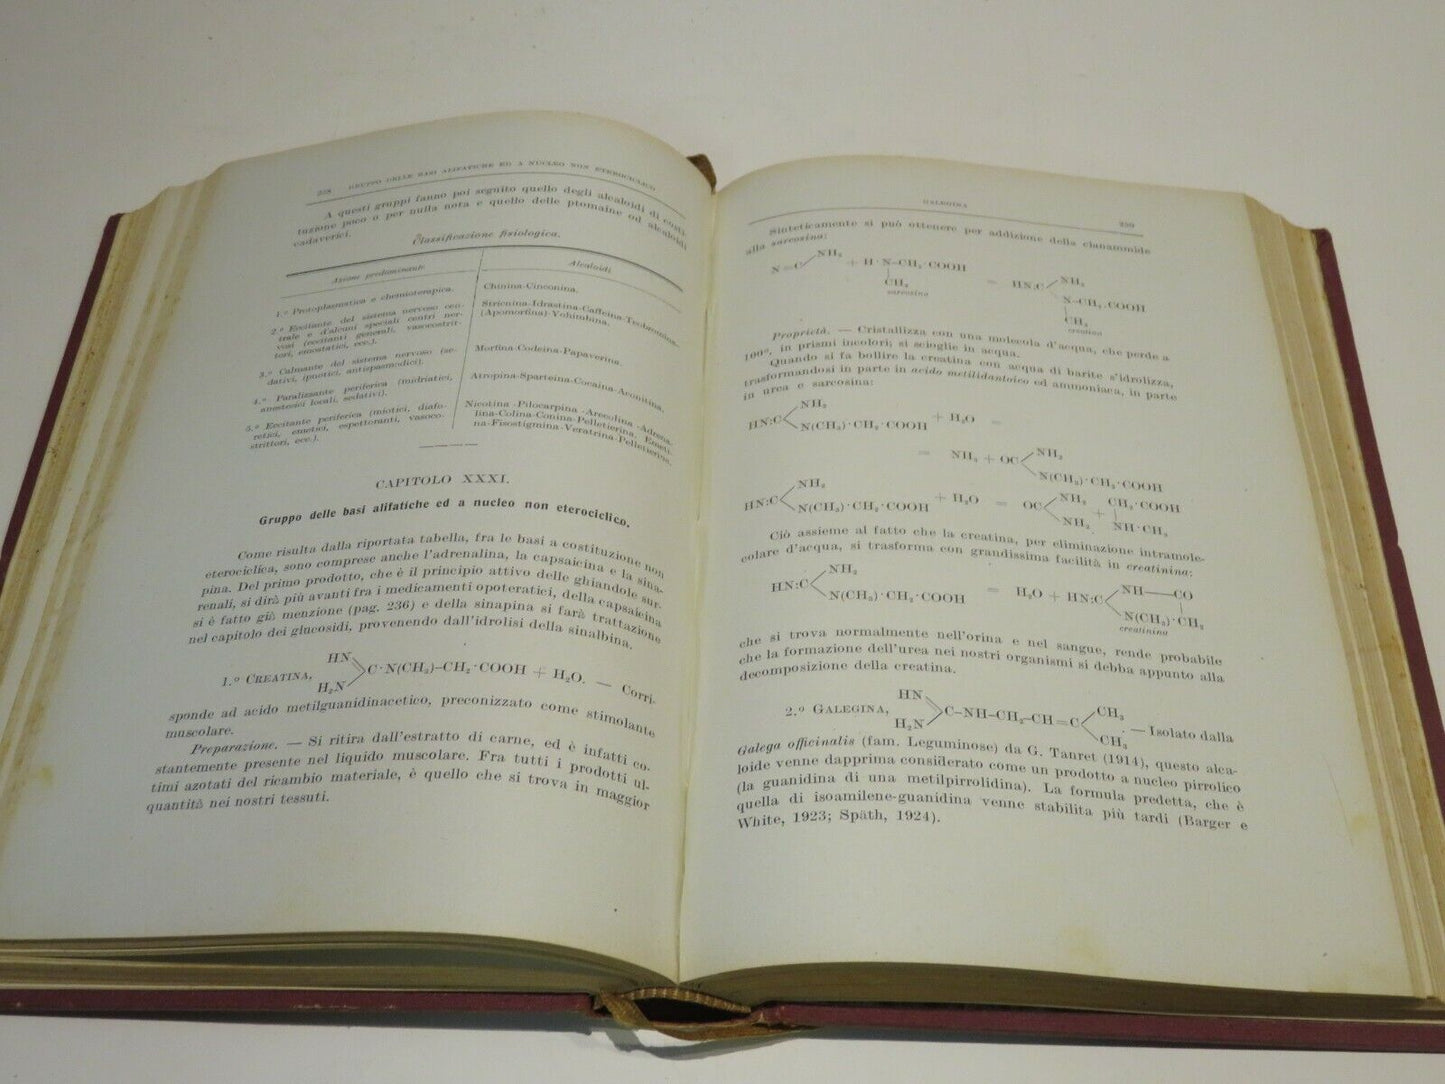 258 GRUPPO DELLE BASI ALIFATICHE ED A NUCLEO NON ETEROCICLICO
A questi gruppi fanno poi seguito quello degli alcaloidi di costi-
tuzione poco o per nulla nota e quello delle ptomaine od alcaloidi
cadaverici.
Classificazione fisiologica.
Azione predominante
Alcaloidi
1.º Protoplasmatica e chemioterapica.
Chinina-Cinconina.
2.º Eccitante del sistema nervoso cen-
trale e d'alcuni speciali centri ner-
vosi (eccitanti generali, vasocostrit-
tori, emostatici, ecc.).
Stricnina-Idrastina-Caffeina-Teobromina-
(Apomorfina)-Yohimbina.
3.º Calmante del sistema nervoso (se-
dativi, ipnotici, antispasmodici).
Morfina-Codeina-Papaverina.
4.º Paralizzante periferica (midriatici,
anestetici locali, sedativi).
Atropina-Sparteina-Cocaina-Aconitina.
5.º Eccitante periferica (miotici, diafo-
retici, emetici, espettoranti, vasoco-
strittori, ecc.).
Nicotina-Pilocarpina-Arecolina-Adrena-
lina-Colina-Conina-Pelletierina, Emeti-
na-Fisostigmina-Veratrina-Pelletierina.
CAPITOLO XXXI.
Gruppo delle basi alifatiche ed a nucleo non eterociclico.
Come risulta dalla riportata tabella, fra le basi a costituzione non
eterociclica, sono comprese anche l'adrenalina, la capsaicina e la sina-
pina. Del primo prodotto, che è il principio attivo delle ghiandole sur-
renali, si dirà più avanti fra i medicamenti opoteratici, della capsaicina
si è fatto già menzione (pag. 236) e della sinapina si farà trattazione
nel capitolo dei glucosidi, provenendo dall'idrolisi della sinalbina.
HN
1.º CREATINA, C·N(CH3)–CH2·COOH + H2O. — Corri-
H2N
sponde ad acido metilguanidinacetico, preconizzato come stimolante
muscolare.
Preparazione. — Si ritira dall'estratto di carne, ed è infatti co-
stantemente presente nel liquido muscolare. Fra tutti i prodotti ul-
timi azotati del ricambio materiale, è quello che si trova in maggior
quantità nei nostri tessuti.
GALEGINA 259
Sinteticamente si può ottenere per addizione della cianammide
alla sarcosina:
NH2 NH2
N≡C + H·N–CH2·COOH = HN:C
CH3 N–CH2·COOH
sarcosina CH3
creatina
Proprietà. — Cristallizza con una molecola d'acqua, che perde a
100º, in prismi incolori; si scioglie in acqua.
Quando si fa bollire la creatina con acqua di barite s'idrolizza,
trasformandosi in parte in acido metilidantoico ed ammoniaca, in parte
in urea e sarcosina:
NH2
HN:C + H2O =
N(CH3)·CH2·COOH
NH2
= NH3 + OC
N(CH3)·CH2·COOH
NH2 NH2 CH2·COOH
HN:C + H2O = OC +
N(CH3)·CH2·COOH NH2 NH·CH3
Ciò assieme al fatto che la creatina, per eliminazione intramole-
colare d'acqua, si trasforma con grandissima facilità in creatinina:
NH2 NH——CO
HN:C = H2O + HN:C
N(CH3)·CH2·COOH N(CH3)·CH2
creatinina
che si trova normalmente nell'orina e nel sangue, rende probabile
che la formazione dell'urea nei nostri organismi si debba appunto alla
decomposizione della creatina.
HN CH3
2.º GALEGINA, C–NH–CH2–CH=C — Isolato dalla
H2N CH3
Galega officinalis (fam. Leguminose) da G. Tanret (1914), questo alca-
loide venne dapprima considerato come un prodotto a nucleo pirrolico
(la guanidina di una metilpirrolidina). La formula predetta, che è
quella di isoamilene-guanidina venne stabilita più tardi (Barger e
White, 1923; Späth, 1924).